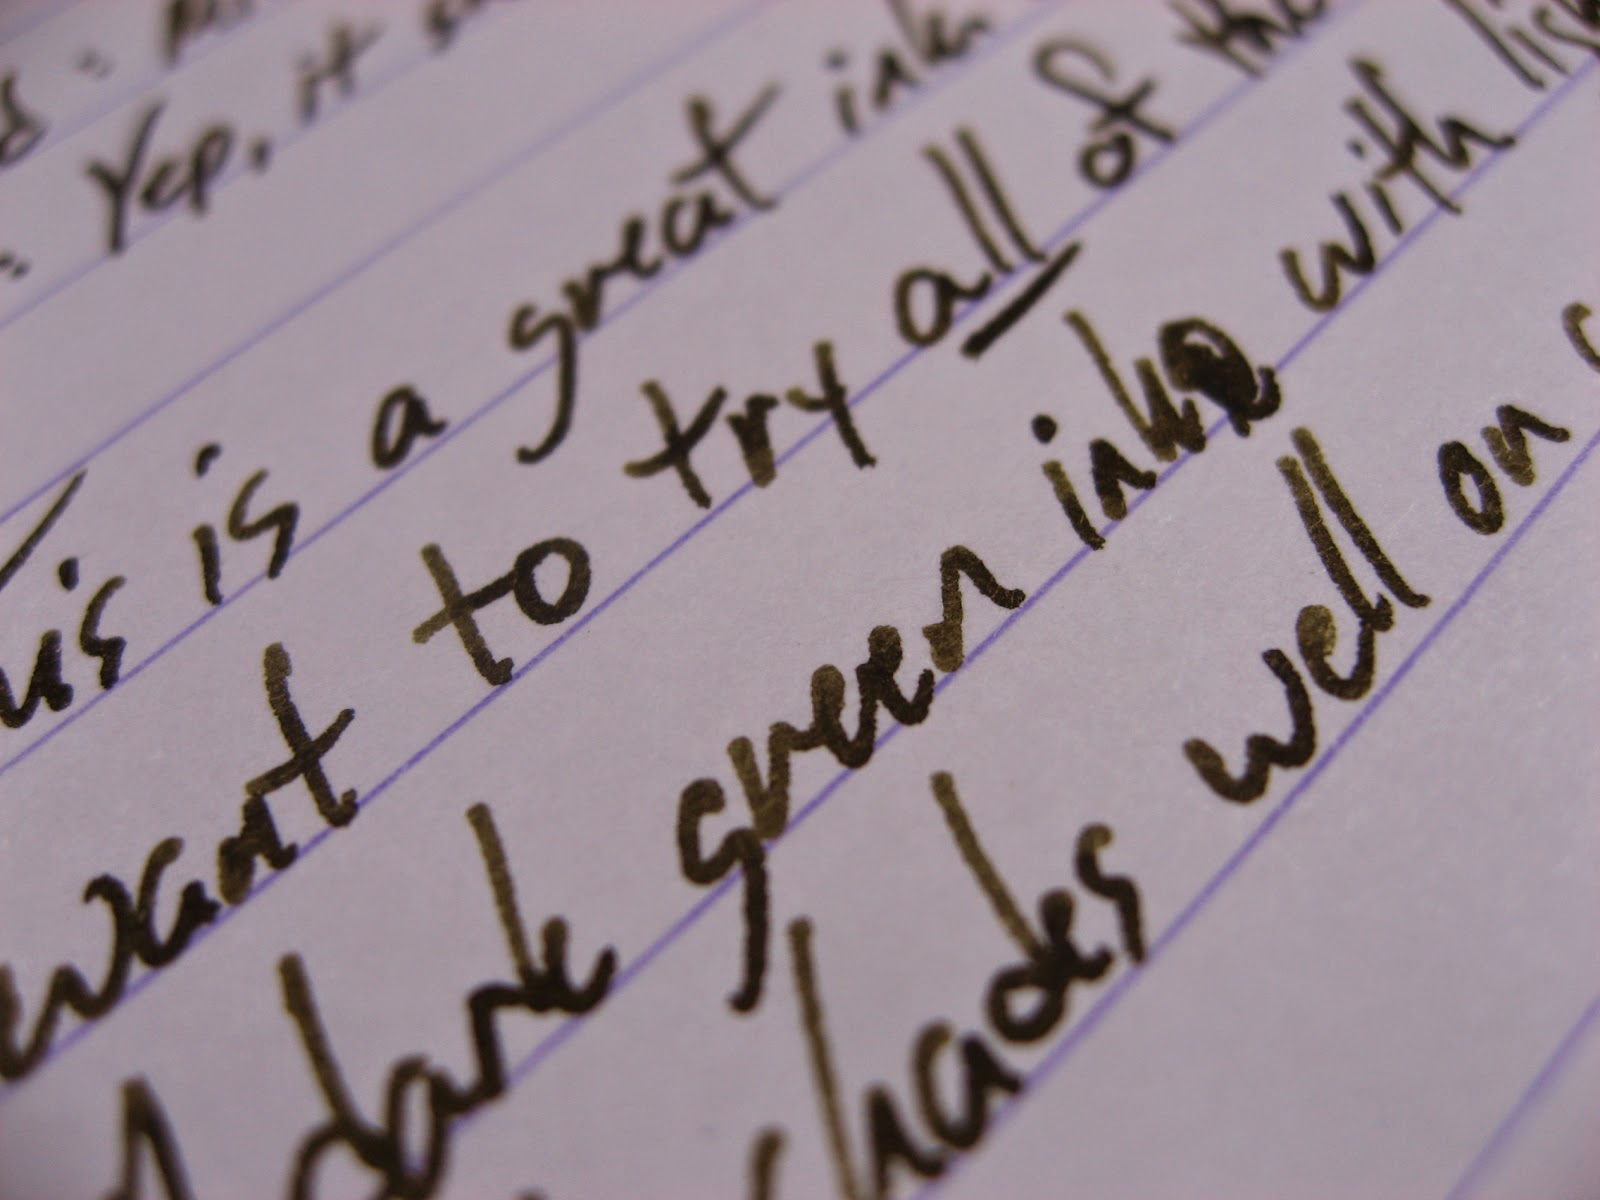 Yep, it
This is a great ink
want to try all of the
dark green inks with
shades well on